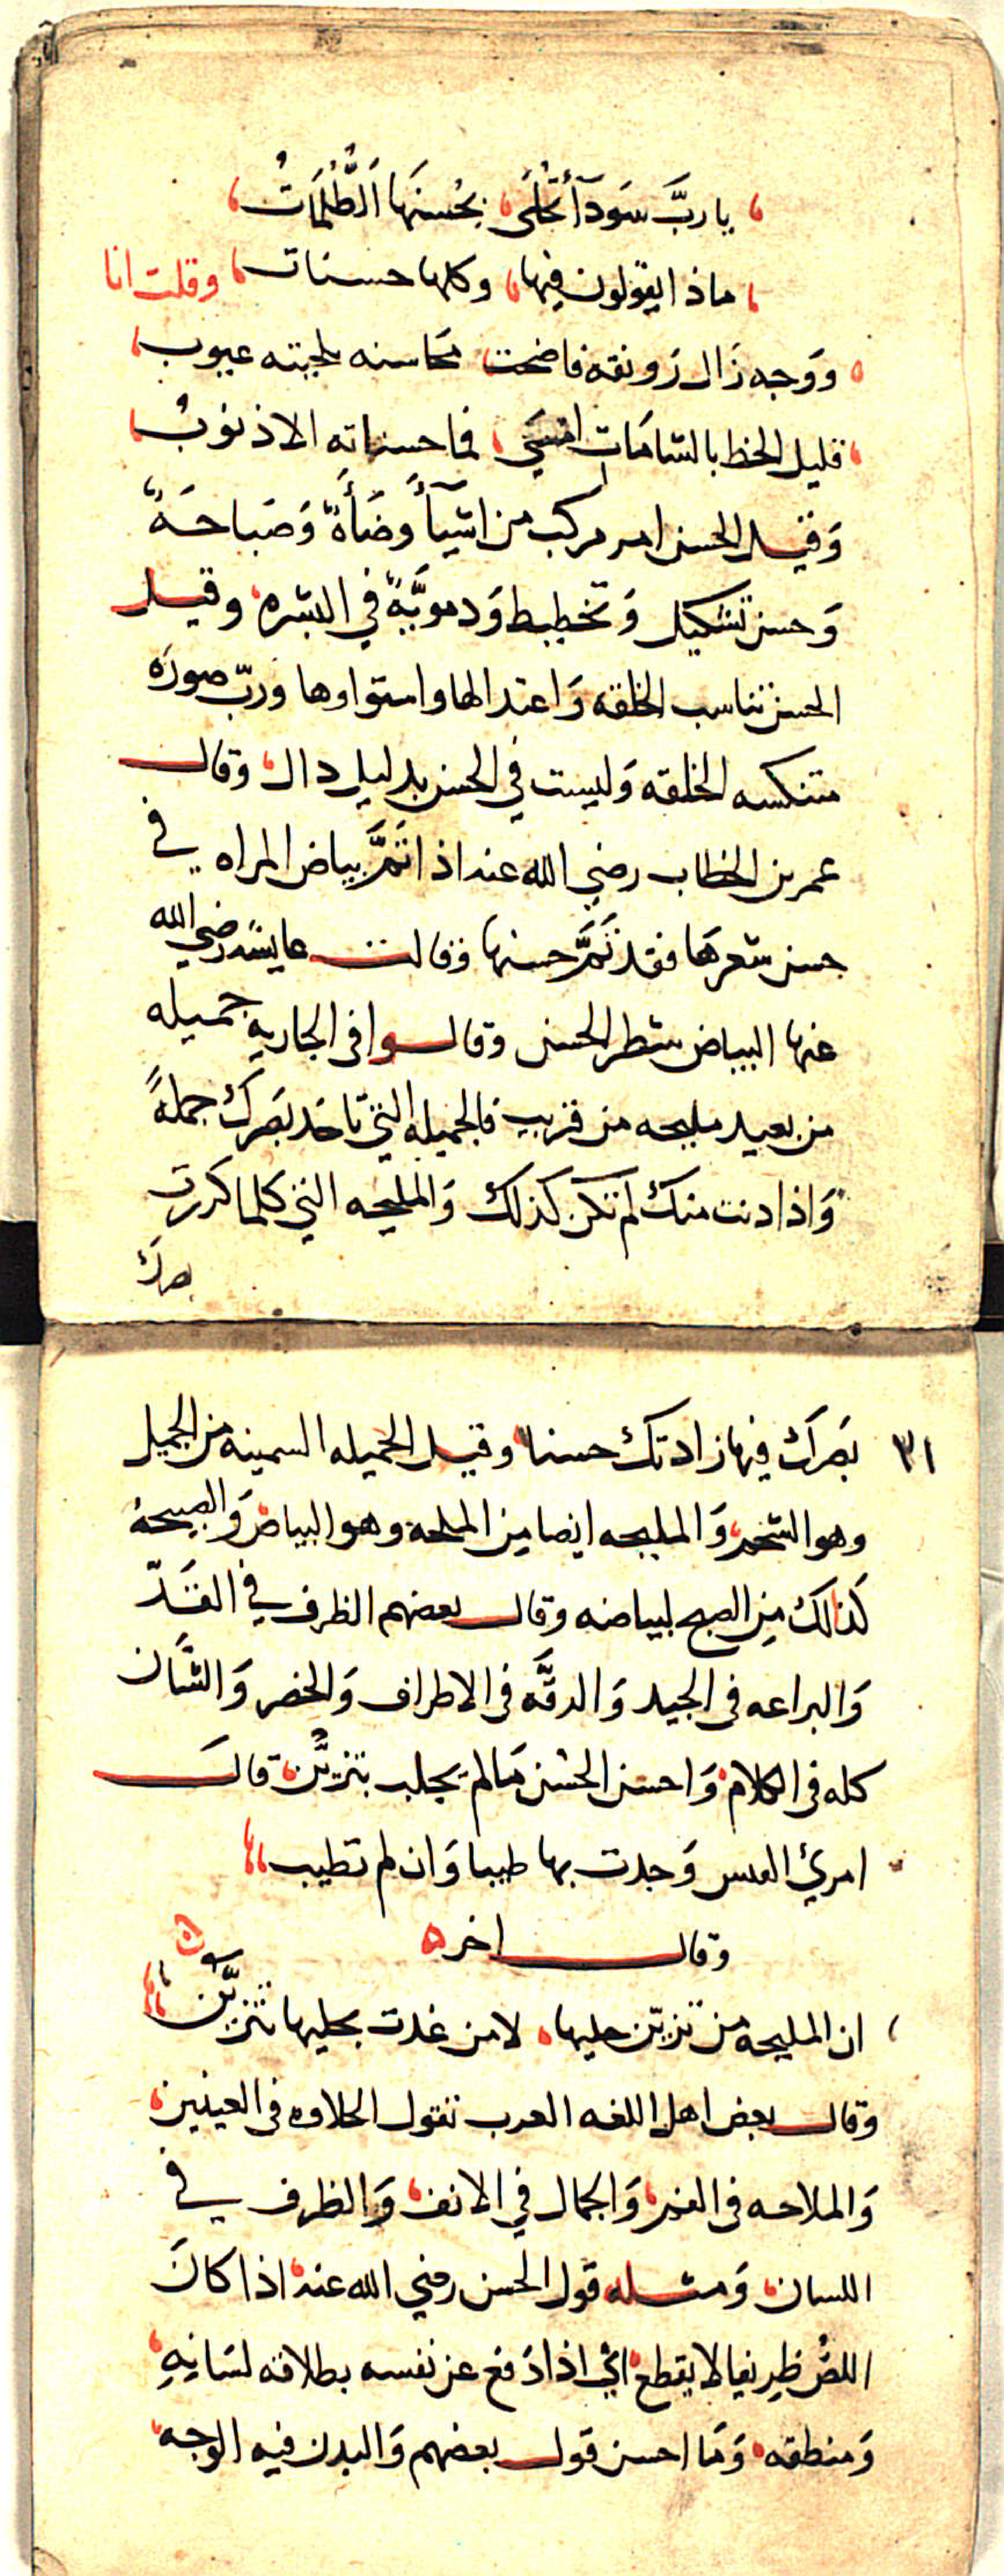 يا ربَّ سَودآء تُجْلَى بحُسنهَا الظُّلمَاتُ
ماذا يقولون فيها وكلها حسنات وقلت انا
ووَجه زَال رَونقه فاضحت محَاسنه بلحيته عيوب
قليل الحظ بالشامَات امسَى فما حسناته الا ذنوبُ
وَقيل الحسن امر مركب من اشيآء وضَأة وَصَباحَةً
وَحسن تشكيل وَتخطيط وَدمويَّة في البشره وقيل
الحسن تناسب الخلقه وَاعتدالها واستواوها وربّ صورَه
متنكسه الخلقه وَليست في الحسن بدليل دال وقال
عمر بن الخطاب رضي الله عنه اذا تمَّ بياض المراه في
حسن شعرهَا فقد تمَّ حسنها وقالت عايشه رضي الله
عنها البياض شطر الحسن وقالوا في الجاريه جميله
من بعيد مليحه من قريب فالجميله التي تاخذ بصَرك جملةً
وَاذا دنت منك لم تكن كذلك وَالمليحه التي كلما كررت
بصرك
٣١ بصَرك فيها زادتك حسنا وقيل الجميله السمينه من الجميل
وهو الشحم وَالمليحه ايضا مِن الملحه وهو البياض وَالصبيحة
كذالك مِن الصبح لبياضه وقال بعضهم الظرف في القَدّ
وَالبراعه في الجيد وَالدقَّه في الاطراف وَالخصر وَالشان
كله في الكلام وَاحسن الحُسن مَا لم يجلب بتزيُّن قالَ
امرئ القيس وَجدت بها طيبا وَان لم تطيب
وقال اخر
ان المليحه من تزيّن حليها لا من غدت بحليها تتزيَّن
وقال بعض اهل اللغه العرب تقول الحلاوه في العينين
وَالملاحه في الفم وَالجمال في الانف وَالظرف في
اللسان وَمثله قول الحسن رضي الله عنه اذا كانَ
اللصُّ ظريفا لا يقطع اي اذا دَفع عن نفسه بطلاقه لسَانِهِ
وَمنطقه وَمَا احسن قول بعضهم وَالبدن فيه الوجه